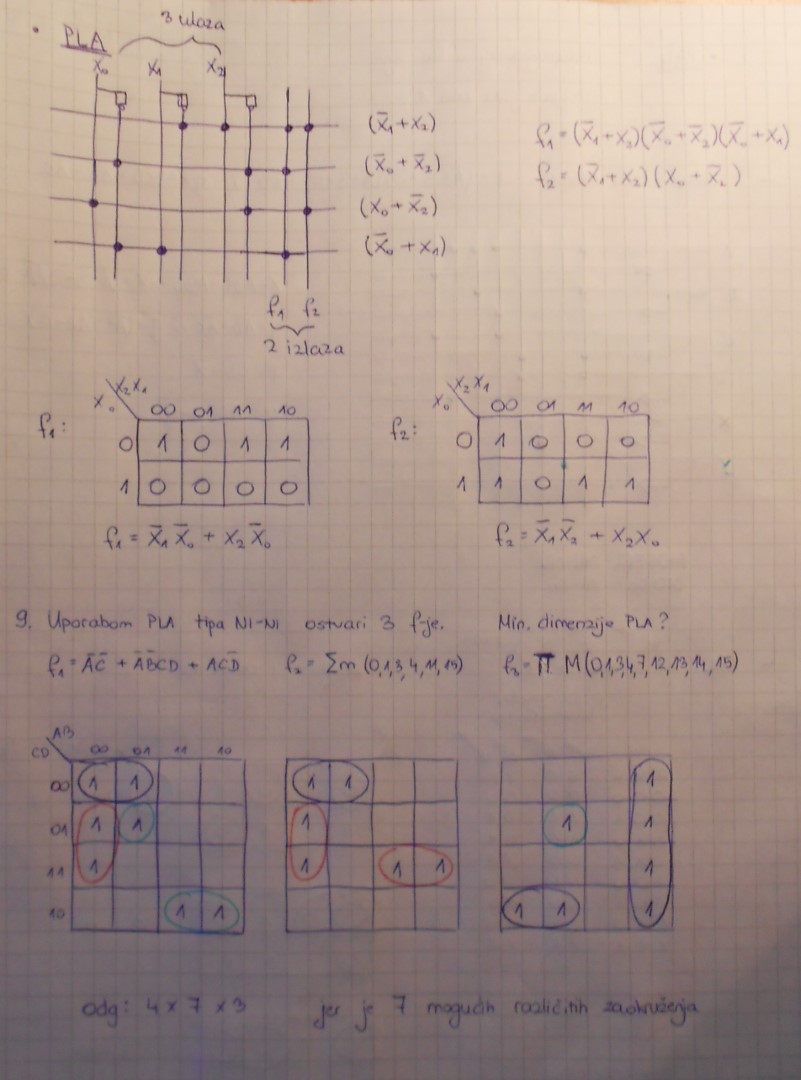 3 ulaza
• PLA
X₀ X₁ X₂
(X̄₁+X₂)
(X̄₀+X̄₂)
(X₀+X̄₂)
(X̄₀+X₁)
f₁=(X̄₁+X₂)(X̄₀+X̄₂)(X̄₀+X₁)
f₂=(X̄₁+X₂)(X₀+X̄₂)
f₁ f₂
2 izlaza
f₁:
X₂X₁
X₀ 00 01 11 10
0 1 0 1 1
1 0 0 0 0
f₁ = X̄₁X̄₀ + X₂X̄₀
f₂:
X₂X₁
X₀ 00 01 11 10
0 1 0 0 0
1 1 0 1 1
f₂ = X̄₁X̄₂ + X₂X₀
9. Uporabom PLA tipa NI-NI ostvari 3 f-je. Min. dimenzije PLA?
f₁=ĀC̄ + ĀB̄CD + ACD̄ f₂=Σm(0,1,3,4,11,15) f₃=ΠM(0,1,3,4,7,12,13,14,15)
AB
CD 00 01 11 10
00 1 1
01 1 1
11 1
10 1 1
1 1
1
1 1 1
1
1 1
1
1 1 1
odg: 4 x 7 x 3 jer je 7 mogućih različitih zaokruženja